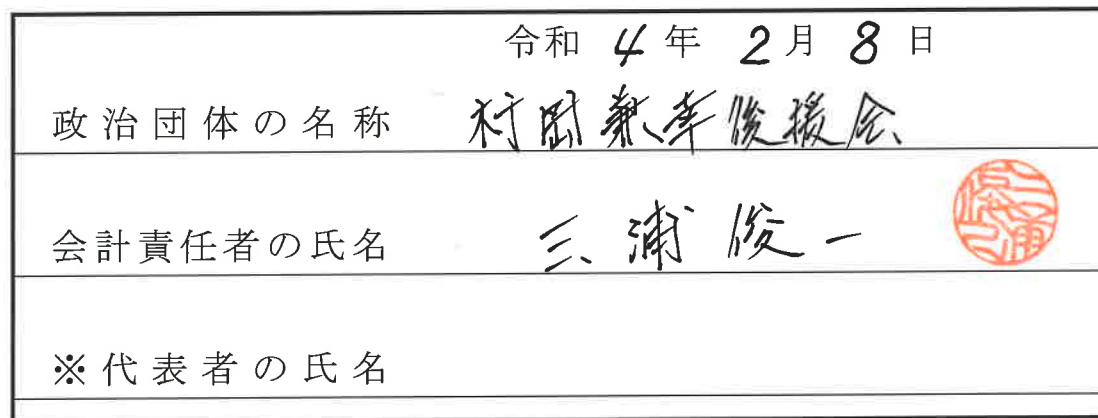 令和 4 年 2 月 8 日
政治団体の名称 村岡兼幸後援会
会計責任者の氏名 三浦俊一
※代表者の氏名